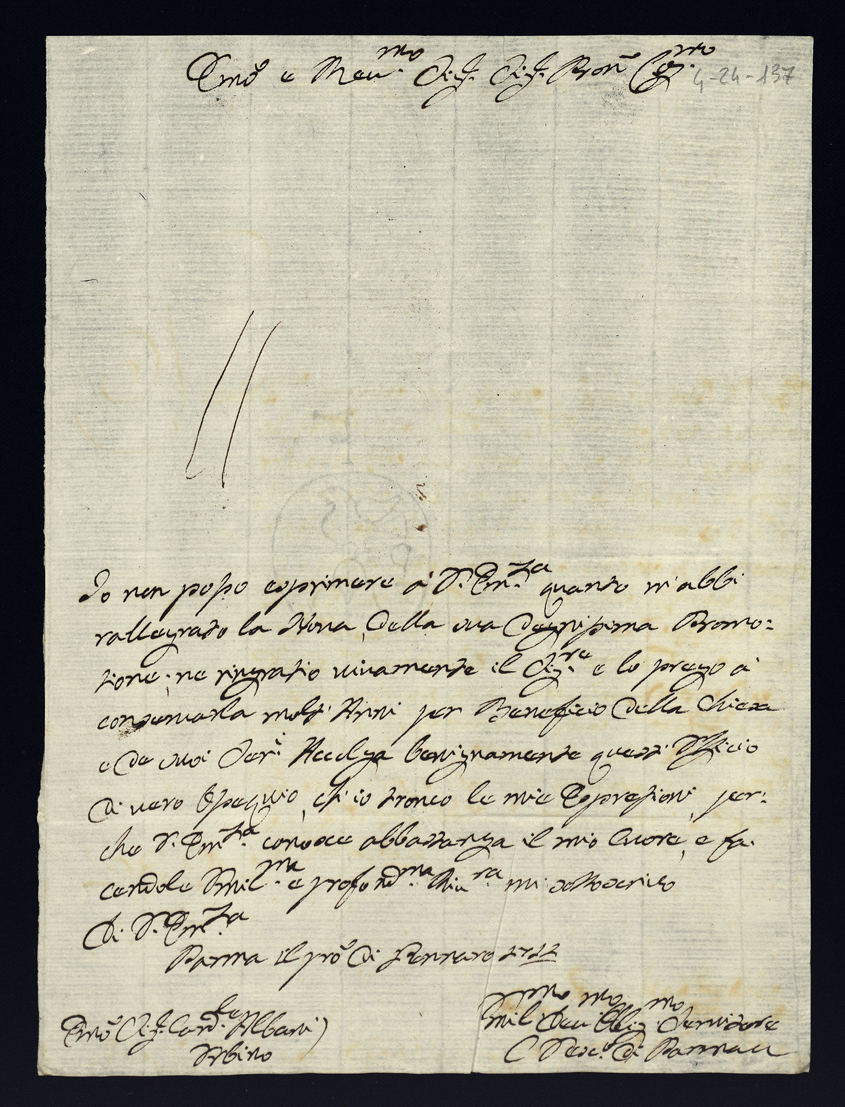 Emo e Reu.mo Sig. Sig. Pron Col.mo
4-24-137
Io non posso esprimere à V. Em.za quanto m'abbi
rallegrato la Nova della sua degnissima Promo=
tione; ne ringratio vivamente il Sig.re e lo prego à
conservarla molti Anni per Beneficio della Chiesa
e de suoi Ser.i Accolga benignamente questi Officio
di vero Ossequio, ch'io tronco le mie Espressioni, per=
che V. Em.za conosce abbastanza il mio Cuore, e fa=
cendole Umil.ma e profond.ma Riu.ra mi sottoscrivo
Di V. Em.za
Parma il pro di Gennaro 1712
Emo Sig. Card.le Albani
Urbino
Umil.mo Deu.mo Oblig.mo Servitore
C Vesc.o di Parma